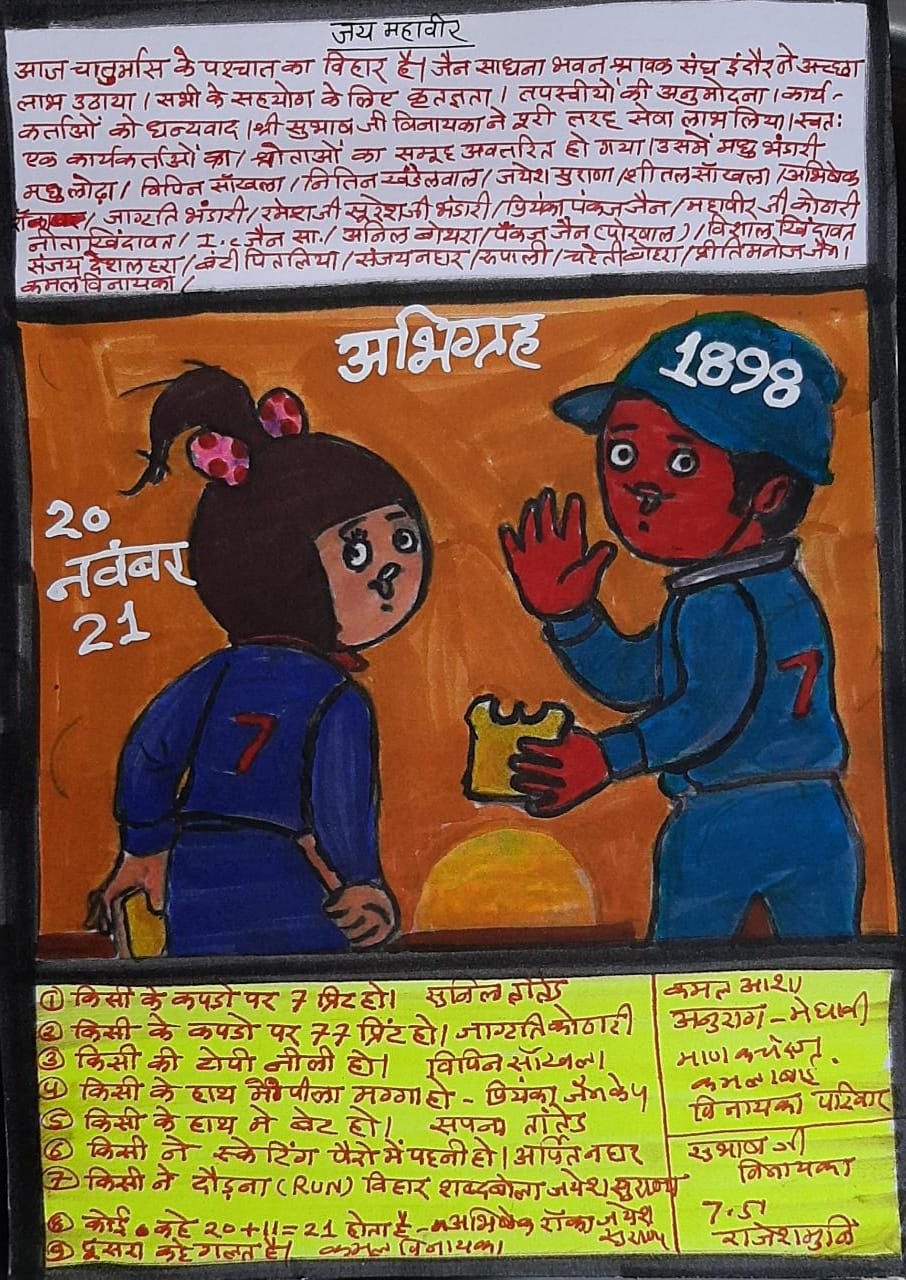 जय महावीर
आज चातुर्मास के पश्चात का विहार है। जैन साधना भवन श्रावक संघ इंदौर ने अच्छा
लाभ उठाया। सभी के सहयोग के लिए कृतज्ञता। तपस्वीयों की अनुमोदना। कार्य-
कर्ताओं को धन्यवाद। श्री सुभाष जी विनायका ने पूरी तरह सेवा लाभ लिया। स्वतः
एक कार्यकर्ताओं का/ श्रोताओं का समूह अवतरित हो गया। उसमें मधु भंडारी
मधु लोढ़ा/ विपिन साँखला/ नितिन खंडेलवाल/ जयेश सुराणा/ शीतल साँखला/ अभिषेक
/ जागृति भंडारी/ रमेशजी सुरेशजी भंडारी/ प्रियंका पंकज जैन/ महावीर जी कोठारी
नीता खिंदावत/ I.C जैन सा./ अनिल बोथरा/ पंकज जैन (पोरवाल)/ विशाल खिंदावत
संजय देशलहरा/ बंटी पितलिया/ संजय नघर/ रुपाली/ चहेती बोहरा/ प्रीति मनोज जैन।
कमल विनायका/
अभिग्रह
1898
20
नवंबर
21
7
7
① किसी के कपडो पर 7 प्रिंट हो। सुनिल तांतेड
② किसी के कपडो पर 77 प्रिंट हो। जागृति कोठारी
③ किसी की टोपी नीली हो। विपिन साँखला
④ किसी के हाथ में पीला मग्गा हो - प्रियंका जैन
⑤ किसी के हाथ मे बेट हो। सपना तांतेड
⑥ किसी ने स्केटिंग पैरो में पहनी हो। अर्पित नघर
⑦ किसी ने दौड़ना (RUN) विहार शब्द बोला जयेश सुराणा
⑧ कोई कहे 20+11=21 होता है - अभिषेक राँका जयेश
सुराणा
⑨ दूसरा कहे गलत है। कमल विनायका
कमल आशा
अनुराग - मेधावी
माणकचंद
विनायका परिवार
सुभाष जी
विनायका
7.51
राजेशमुनि